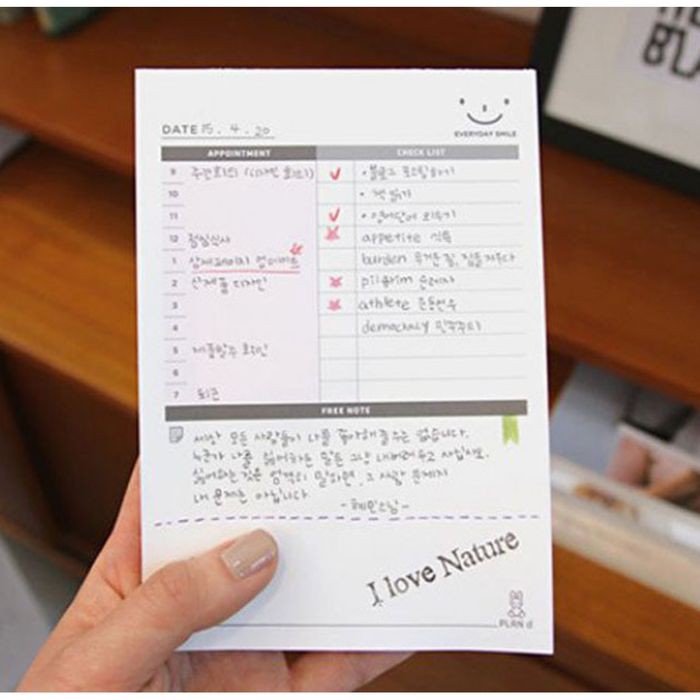 DATE 15. 4. 20
EVERYDAY SMILE
APPOINTMENT
CHECK LIST
9 주간회의 (디자인 회의)
10
11
12 점심식사
1 상세페이지 업데이트
2 신제품 디자인
3
4
5 제품발주 확인
6
7 퇴근
• 블로그 포스팅하기
• 책 읽기
• 영어단어 외우기
appetite 식욕
burden 무거운 짐, 짐을 지우다
pilgrim 순례자
athlete 운동선수
democracy 민주주의
FREE NOTE
세상 모든 사람들이 나를 좋아해줄 수는 없습니다.
누군가 나를 싫어하는 말은 그냥 내버려 두고 사십시오.
싫어하는 것은 엄격히 말하면, 그 사람 문제지
내 문제는 아닙니다
-혜민스님-
I love Nature
PLAN d